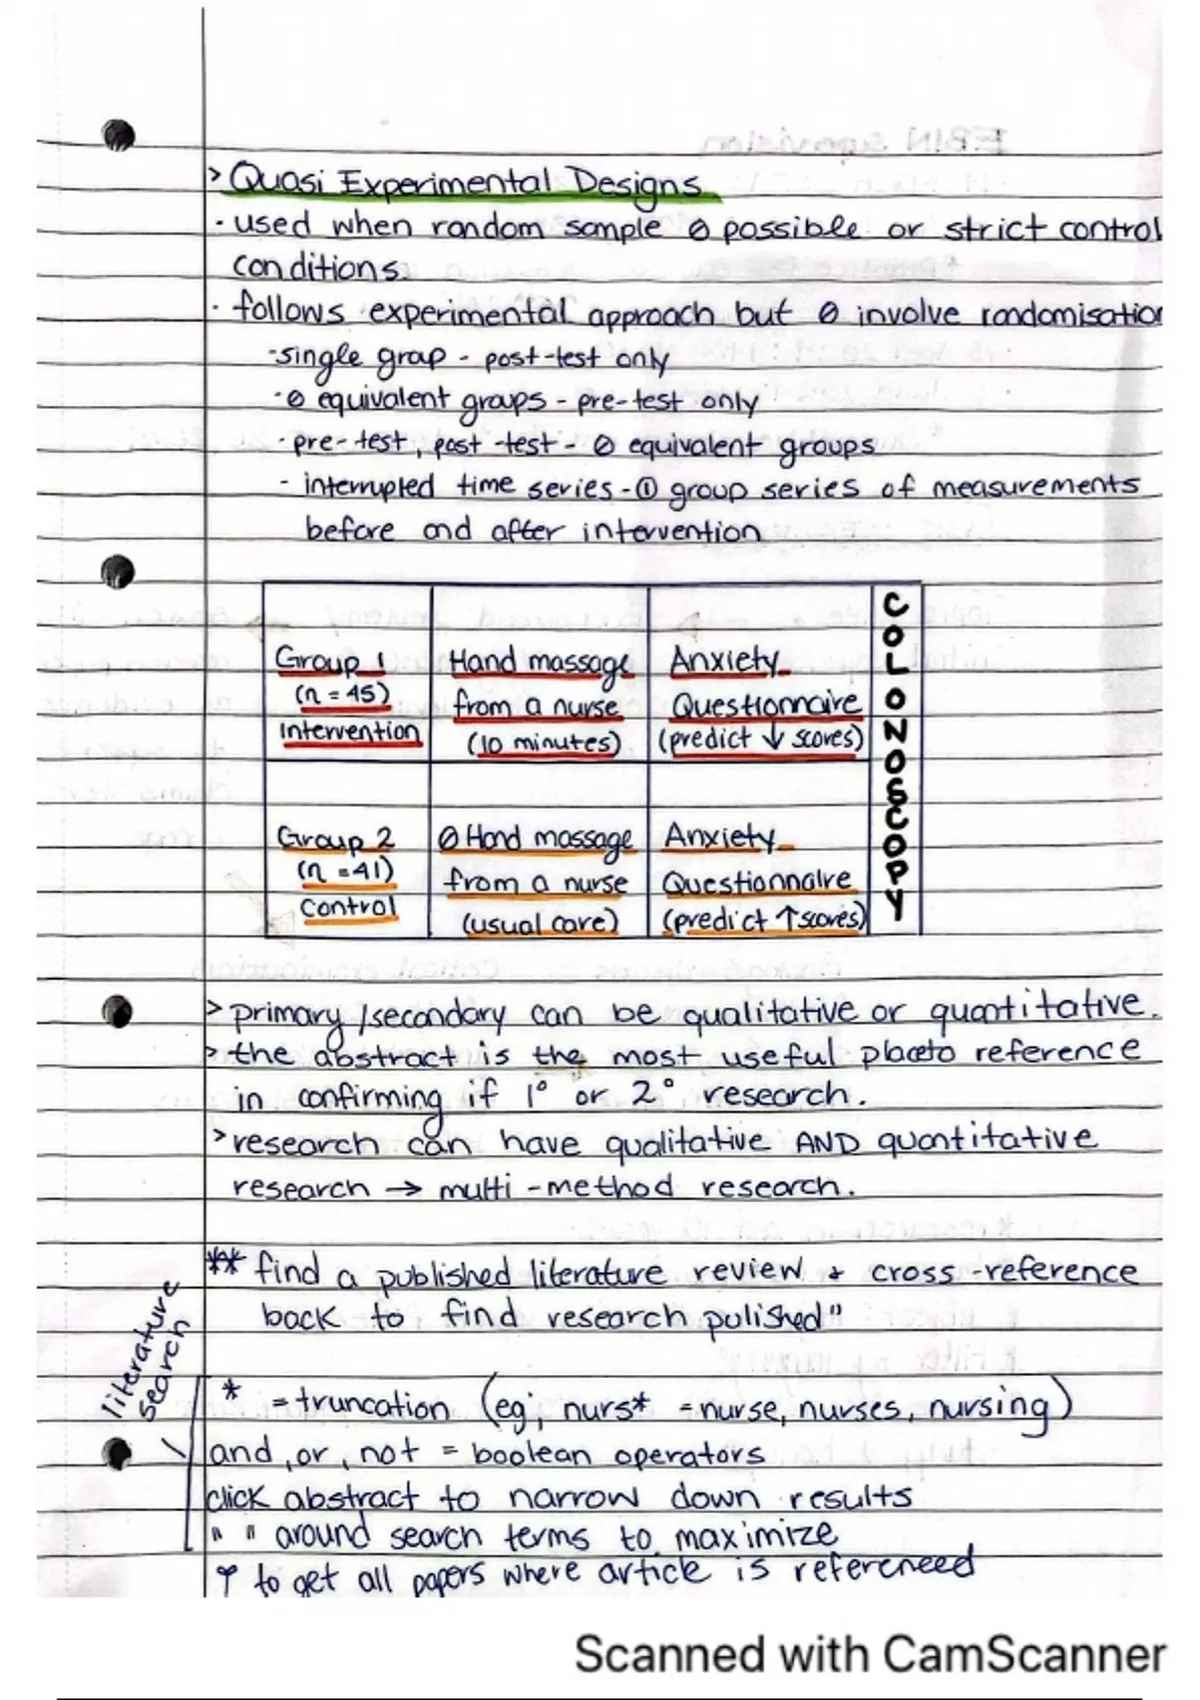 > Quasi Experimental Designs
· used when random sample ∅ possible or strict control
conditions.
· follows experimental approach but ∅ involve randomisation
-single group - post-test only
·∅ equivalent groups - pre-test only
· pre-test, post-test - ∅ equivalent groups
- interrupted time series - ① group series of measurements
before and after intervention
Group 1
(n = 45)
intervention
Hand massage
from a nurse
(10 minutes)
Anxiety
Questionnaire
(predict ↓ scores)
COLONOSCOPY
Group 2
(n = 41)
control
∅ Hand massage
from a nurse
(usual care)
Anxiety
Questionnaire
(predict ↑ scores)
> primary/secondary can be qualitative or quantitative.
> the abstract is the most useful placeto reference
in confirming if 1° or 2° research.
> research can have qualitative AND quantitative
research → multi-method research.
** find a published literature review + cross-reference
back to find research pulished"
literature
search
* = truncation (eg; nurs* = nurse, nurses, nursing)
and, or, not = boolean operators
click abstract to narrow down results
" " around search terms to maximize
↑ to get all papers where article is refereneed
Scanned with CamScanner